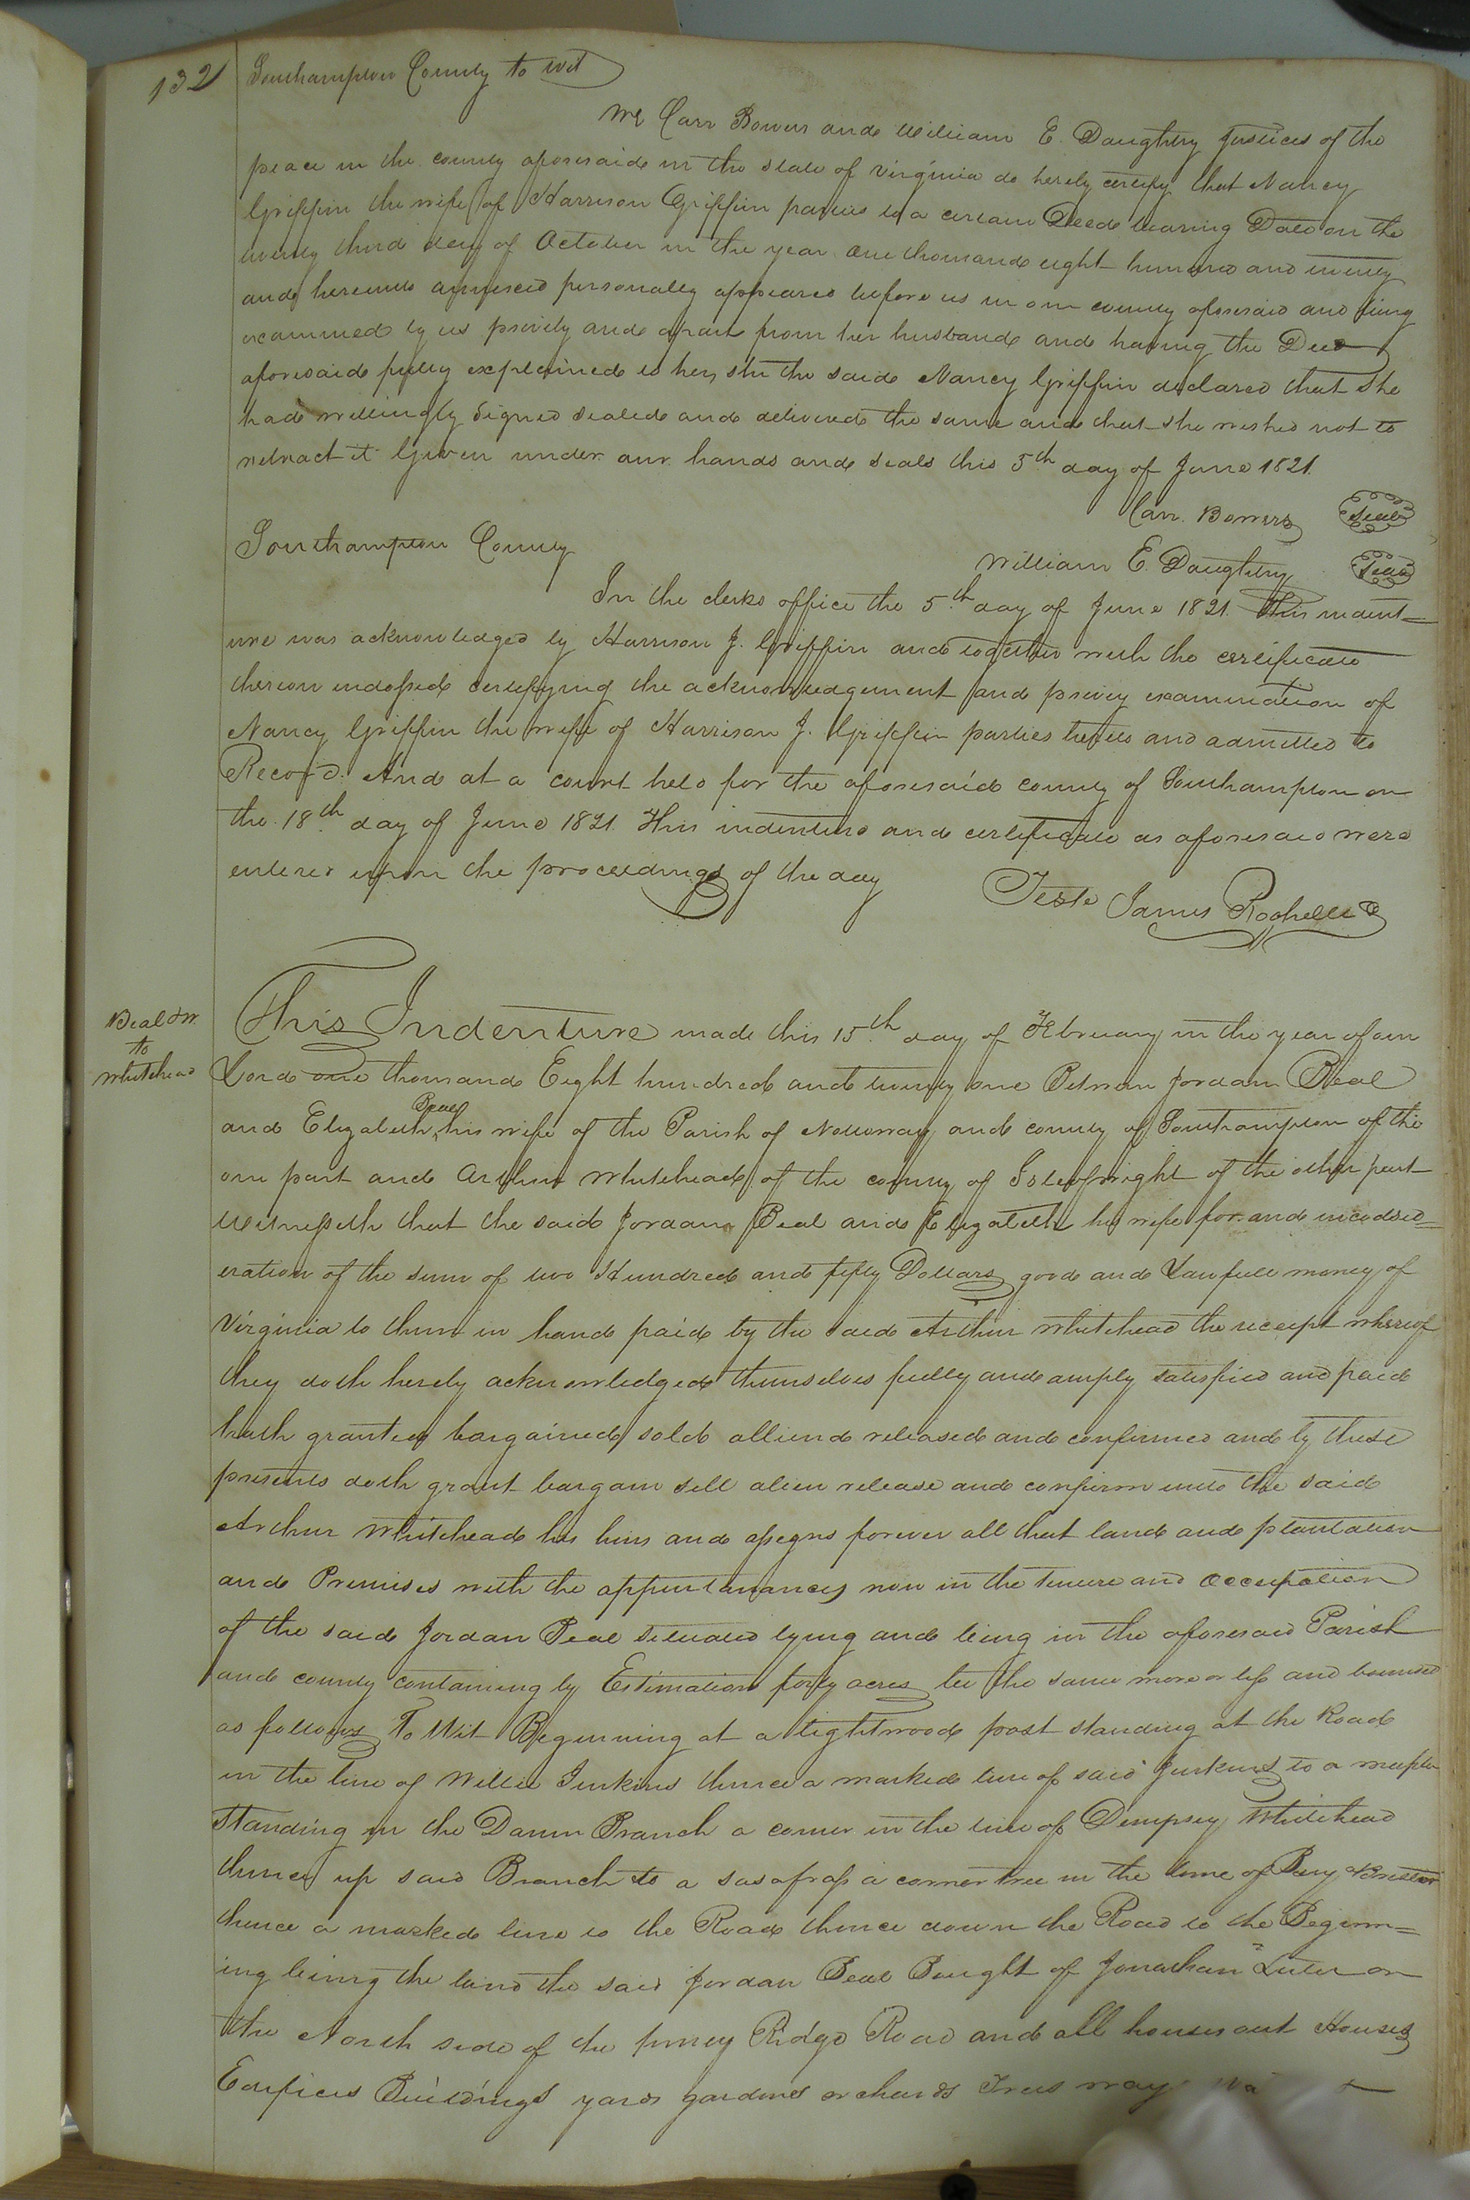 132
Southampton County to wit
We Carr Bowers and William E. Daughtry Justices of the
peace in the county aforesaid in the state of Virginia do hereby certify that Nancy
Griffin the wife of Harrison Griffin parties to a certain Deed bearing Date on the
twenty third day of October in the year one thousand eight hundred and twenty
and hereunto annexed personally appeared before us in our county aforesaid and being
examined by us privily and apart from her husband and having the Deed
aforesaid fully explained to her, she the said Nancy Griffin declared that she
had willingly signed sealed and delivered the same and that she wished not to
retract it Given under our hands and seals this 5th day of June 1821.
Carr. Bowers Seal
Southampton County
William E. Daughtry Seal
In the clerks office the 5th day of June 1821 This indent=
ure was acknowledged by Harrison J. Griffin and together with the certificate
thereon indossed certifying the acknowledgement and privey examination of
Nancy Griffin the wife of Harrison J. Griffin parties hereto and admitted to
Record. And at a court held for the aforesaid county of Southampton on
the 18th day of June 1821 This indenture and certificate as aforesaid were
entered upon the proceedings of the day
Teste James Rochelle C
Beal & W
to
Whitehead
This Indenture made this 15th day of February in the year of our
Lord one thousand Eight hundred and twenty one Between Jordan Beal
and Elizabeth Beal his wife of the Parish of Nottoway and county of Southampton of the
one part and Arthur Whitehead of the county of Isle of wright of the other part
Witnesseth that the said Jordan Beal and Elizabeth his wife for and in
eration of the sum of two Hundred and fifty Dollars good and Lawfull money of
Virginia to them in hand paid by the said Arthur Whitehead the receipt whereof
they doth hereby acknowledged themselves fully and amply satisfied and paid
hath granted bargained sold alliend released and confirmed and by these
presents doth grant bargain sell alien release and confirm unto the said
Arthur Whitehead his heirs and assegns forever all that land and plantation
and Premises with the appurtanances now in the tenure and occupation
of the said Jordan Beal situated lying and being in the aforesaid Parish
and county containing by Estimation forty acres be the same more or less and bounded
as follows To Wit Beginning at a lightwood post standing at the Road
in the line of Willie Jenkins thence a marked line of said Jenkins to a
Standing in the Damm Branch a corner in the line of Dempsey Whitehead
thence up said Branch to a sasafrass a corner tree in the line of
thence a marked line to the Road thence down the Road to the Beginn=
ing being the land the said Jordan Beal Bought of Jonathan Luter on
the North side of the piney Ridge Road and all houses out Houses
Edifices Buildings yards gardines orchards Trees way